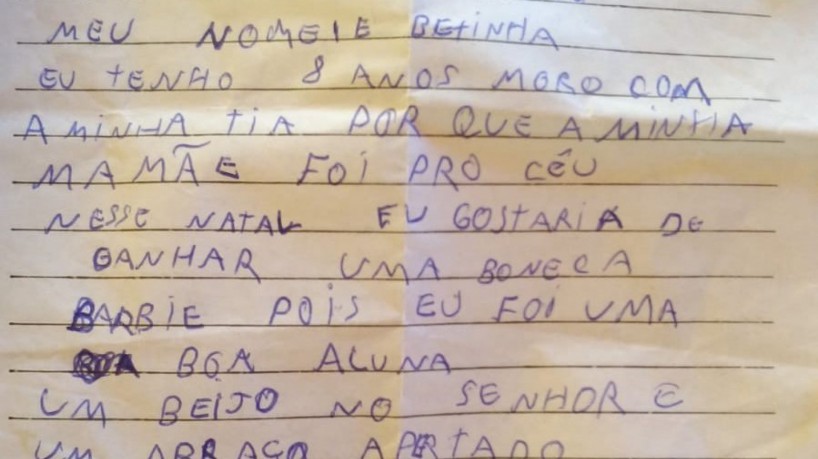 MEU NOMEIE BETINHA
EU TENHO 8 ANOS MORO COM
A MINHA TIA POR QUE A MINHA
MAMÃE FOI PRO CÊU
NESSE NATAL EU GOSTARIA DE
GANHAR UMA BONECA
BARBIE POIS EU FOI UMA
BOA ALUNA
UM BEIJO NO SENHOR E
UM ABRAÇO APERTADO